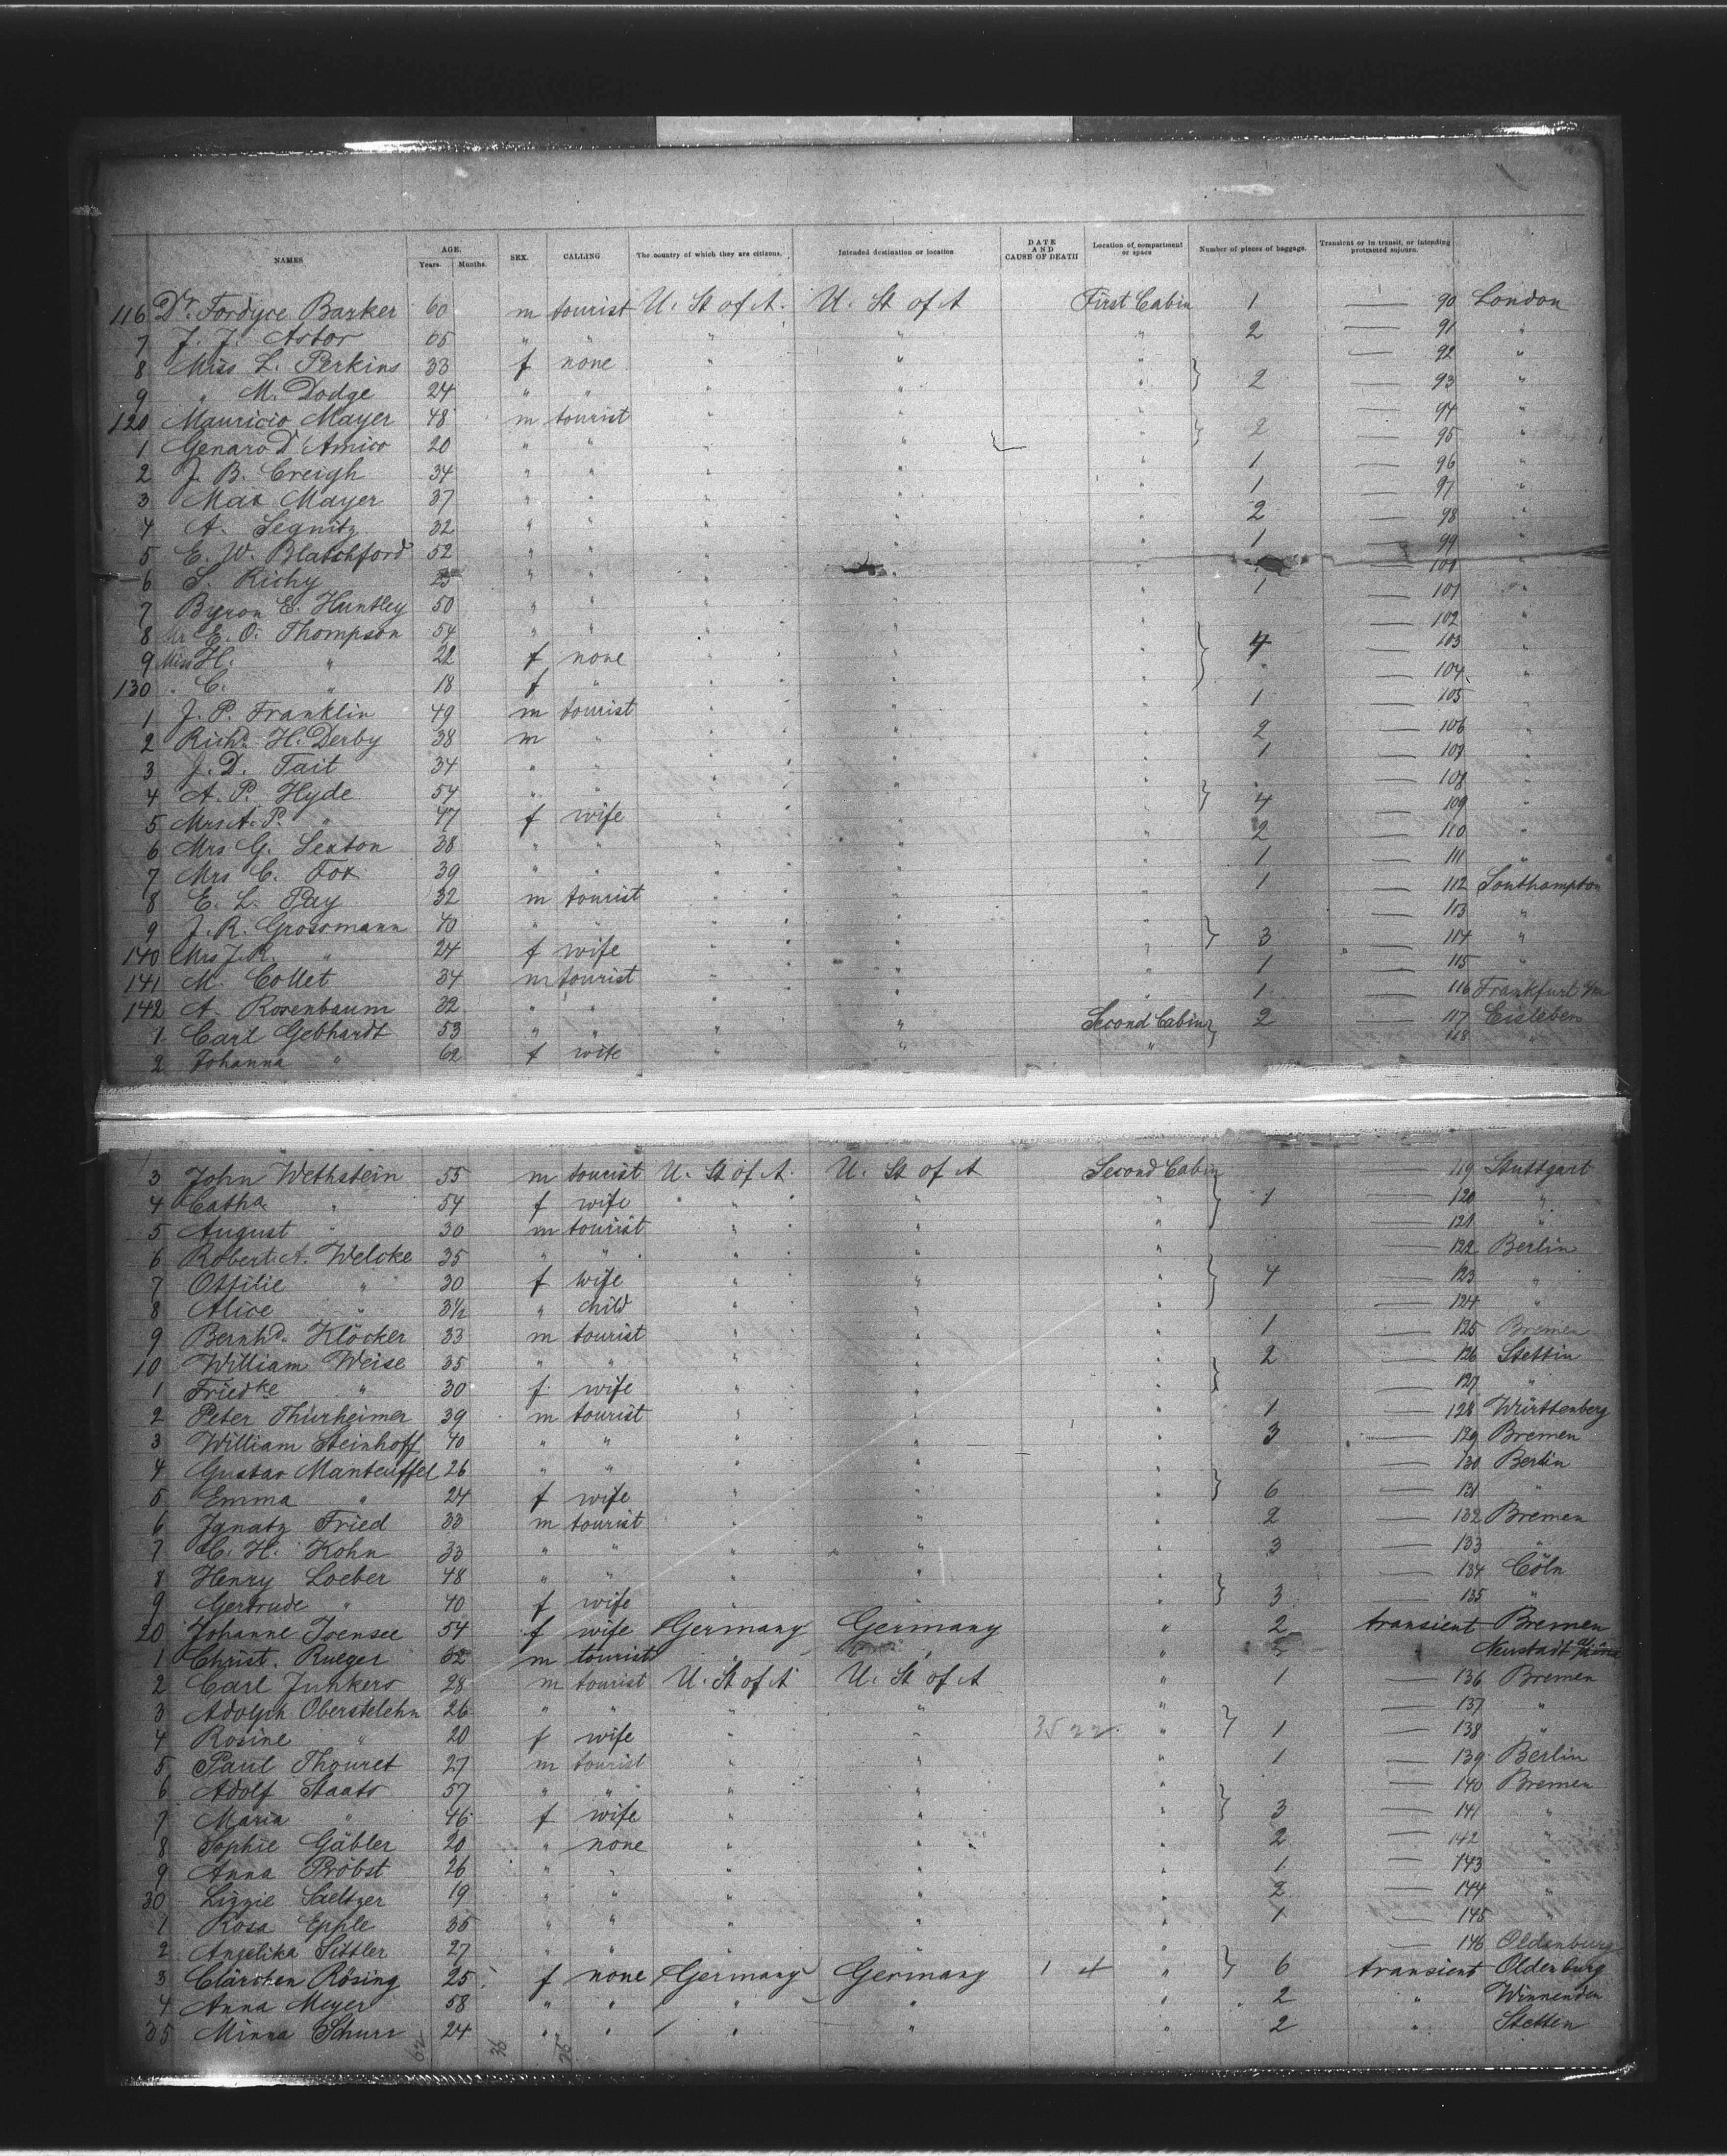 NAMES AGE. Years. Months. SEX. CALLING The country of which they are citizens. Intended destination or location DATE AND CAUSE OF DEATH Location of compartment or space Number of pieces of baggage. Transient or in transit, or intending protracted sojourn.
116 Dr. Fordyce Barker 60 m tourist U. St of A. U. St of A First Cabin 1 — 90 London
7 J. J. Astor 65 " " " " " 2 — 91 "
8 Miss L. Perkins 33 f none " " " — 92 "
9 " M. Dodge 24 " " " " " } 2 — 93 "
120 Mauricio Mayer 48 m tourist " " " — 94 "
1 Genaro D'Amico 20 " " " " " } 2 — 95 "
2 J. B. Creigh 34 " " " " " 1 — 96 "
3 Max Mayer 37 " " " " " 1 — 97 "
4 A. Segnitz 32 " " " " " 2 — 98 "
5 E. W. Blatchford 52 " " " " " 1 — 99 "
6 S. Richy " " " " "
7 Byron E. Huntley 50 " " " " " 1 — 101 "
8 E. O. Thompson 54 " " " " " — 102 "
9 Miss H. " 22 f none " " " } 4 — 103 "
130 " C. " 18 f " " " " " — 104 "
1 J. P. Franklin 49 m tourist " " " 1 — 105 "
2 Richd. H. Derby 38 m " " " " 2 — 106 "
3 J. D. Tait 34 " " " " " 1 — 107 "
4 A. P. Hyde 54 " " " " " — 108 "
5 Mrs A. P. " 47 f wife " " " } 4 — 109 "
6 Mrs G. Sexton 38 " " " " " 2 — 110 "
7 Mrs C. Fox 39 " " " " " 1 — 111 "
8 E. L. Pay 32 m tourist " " " 1 — 112 Southampton
9 J. R. Grossmann 40 " " " " " — 113 "
140 Mrs J. R. " 24 f wife " " " } 3 — 114 "
141 M. Collet 34 m tourist " " " 1 — 115 "
142 A. Rosenbaum 32 " " " " " 1 — 116 Frankfurt a/m
1 Carl Gebhardt 53 " " " " Second Cabin } 2 — 117 Eisleben
2 Johanna " 62 f wife " " " 118 "
3 John Wethstein 55 m tourist U. St of A. U. St of A Second Cabin 119 Stuttgart
4 Catha " 54 f wife " " " } 1 — 120 "
5 August " 30 m tourist " " " — 121 "
6 Robert A. Welcke 35 " " " " " — 122 Berlin
7 Ottilie " 30 f wife " " " } 4 — 123 "
8 Alice " 3½ " child " " " — 124 "
9 Bernhd. Klöcker 33 m tourist " " " 1 — 125 Bremen
10 William Weise 35 " " " " " 2 — 126 Stettin
1 Friedke " 30 f wife " " " } — 127 "
2 Peter Thürheimer 39 m tourist " " " 1 — 128 Württenberg
3 William Steinhoff 40 " " " " " 3 — 129 Bremen
4 Gustav Manteuffel 26 " " " " " — 130 Berlin
5 Emma " 24 f wife " " " } 6 — 131 "
6 Ignatz Fried 33 m tourist " " " 2 — 132 Bremen
7 H. Kohn 33 " " " " " 3 — 133 "
8 Henry Loeber 48 " " " " " — 134 Cöln
9 Gertrude " 40 f wife " " " } 3 — 135 "
20 Johanne Joensee 54 f wife Germany Germany " 2 transient Bremen
1 Christ. Rueger 32 m tourist " " Neustadt
2 Carl Junkers 28 m tourist U. St of A U. St of A " 1 — 136 Bremen
3 Adolph Oberstelehn 26 " " " " " — 137 "
4 Rosine " 20 f wife " " " } 1 — 138 "
5 Paul Thouret 27 m tourist " " " 1 — 139 Berlin
6 Adolf Staats 57 " " " " " — 140 Bremen
7 Maria " 46 f wife " " " } 3 — 141 "
8 Sophie Gäbler 20 " none " " " 2 — 142 "
9 Anna Pröbst 26 " " " " " 1 — 143 "
30 Lizzie Saeltzer 19 " " " " " 2 — 144 "
1 Rosa Epple 35 " " " " " 1 — 145 "
2 Angelika Sittler 27 " " " " " — 146 Oldenburg
3 Clärchen Rösing 25 f none Germany Germany " } 6 transient Oldenburg
4 Anna Meyer 58 " " " " " 2 " Winnenden
35 Minna Schurr 24 " " " " " 2 " Stetten